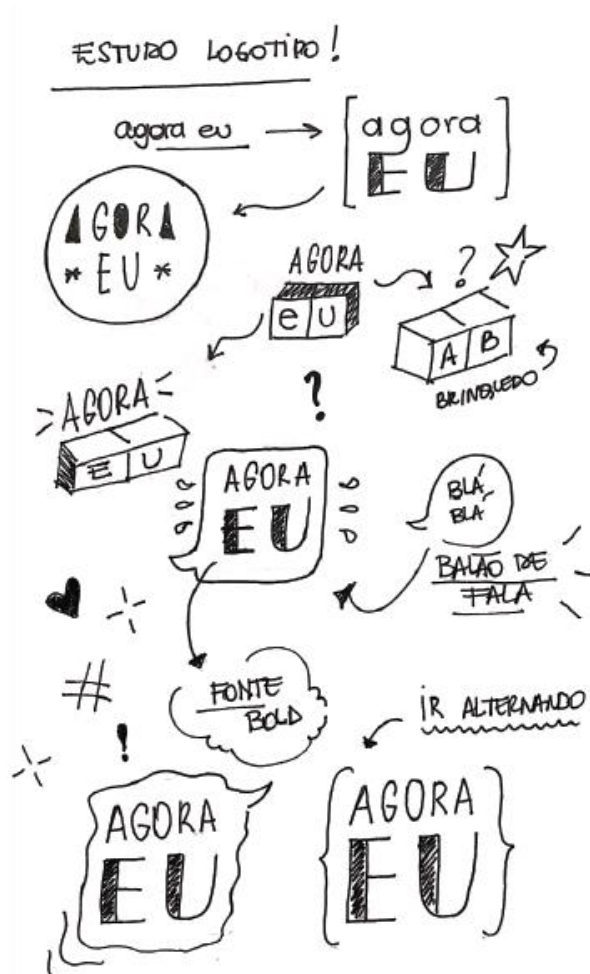 ESTUDO LOGOTIPO!
agora eu
[agora
EU]
AGORA
* EU *
AGORA
eU
?
A B
BRINQUEDO
AGORA
E U
?
AGORA
EU
BLÁ
BLÁ
BALÃO DE
FALA
#
FONTE
BOLD
!
IR ALTERNANDO
AGORA
EU
{AGORA
EU}